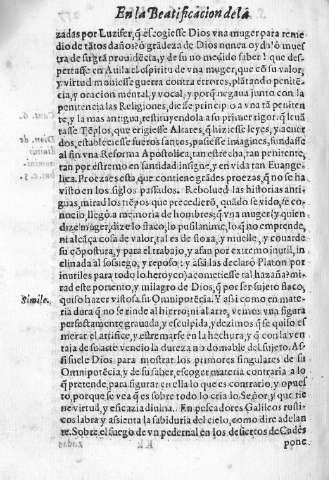 En la Beatificacion de la
zadas por Luzifer, q̃ escogiesse Dios vna muger para reme
dio de tãtos daños? o grãdeza de Dios nunca oyda! o mues
tra de su grã prouidẽcia, y de su no medido saber! que des-
pertasse en Auila el espiritu de vna muger, que cõ su valor,
y virtud mouiesse guerra contra errores, plãtando peniten
cia, y oracion mental, y vocal, y porq̃ negaua junto con la
penitencia las Religiones, diesse principio a vna tã peniten
te, y la mas antigua, restituyendola a su primer rigor. q̃ leuã
tasse Tẽplos, que erigiesse Altares, q̃ hiziesse leyes, y acuer
dos, estableciesse fueros santos, pusiesse imagines, fundasse
al fin vna Reforma Apostolica, tan estrecha, tan penitente,
tan por estremo en santidad insigne, y en vida tan Euange-
lica. Proezas esta que contiene grãdes proezas, q̃ no se ha
visto en los siglos passados. Rebolued las historias anti-
guas, mirad los tiẽpos que precedierõ, quãdo se vido, se co-
nocio, llegò a memoria de hombres, q̃ vna muger (y quien
dize muger, dize lo flaco, lo pusilanime, lo q̃ no emprende,
ni alcãça cosa de valor, tal es de floxa, y muelle, y couarde
su cõpostura, y para el trabajo, y afan por estremo inutil, in
clinada al sossiego, y reposo: y assi las declarò Platon por
inutiles para todo lo heroyco) acometiesse tal hazaña? mi-
rad este portento, y milagro de Dios, q̃ por ser sujeto flaco,
Simile. quiso hazer vistosa su Omnipotẽcia. Y assi como en mate-
ria dura q̃ no se rinde al hierro, ni al arte, vemos vna figura
perfectamente grauada, y esculpida, y dezimos q̃ se quiso es
merar el artifice, y estremarse en la hechura, y q̃ con la ven
taja de su arte vencio la dureza no domable del sujeto. As-
si suele Dios para mostrar los primores singulares de su
Omnipotẽcia, y de su saber, escoger materia contraria a lo
q̃ pretende, para figurar en ella lo que es contrario, y opues
to, porque se vea q̃ es sobre todo lo cria lo Señor, y que tie
ne virtud, y eficazia diuina. En pescadores Galileos rusti-
cos labra y assienta la sabiduria del cielo, como dire adelan
te. Sobre el fuego de vn pedernal en los desiertos de Cadès
pone